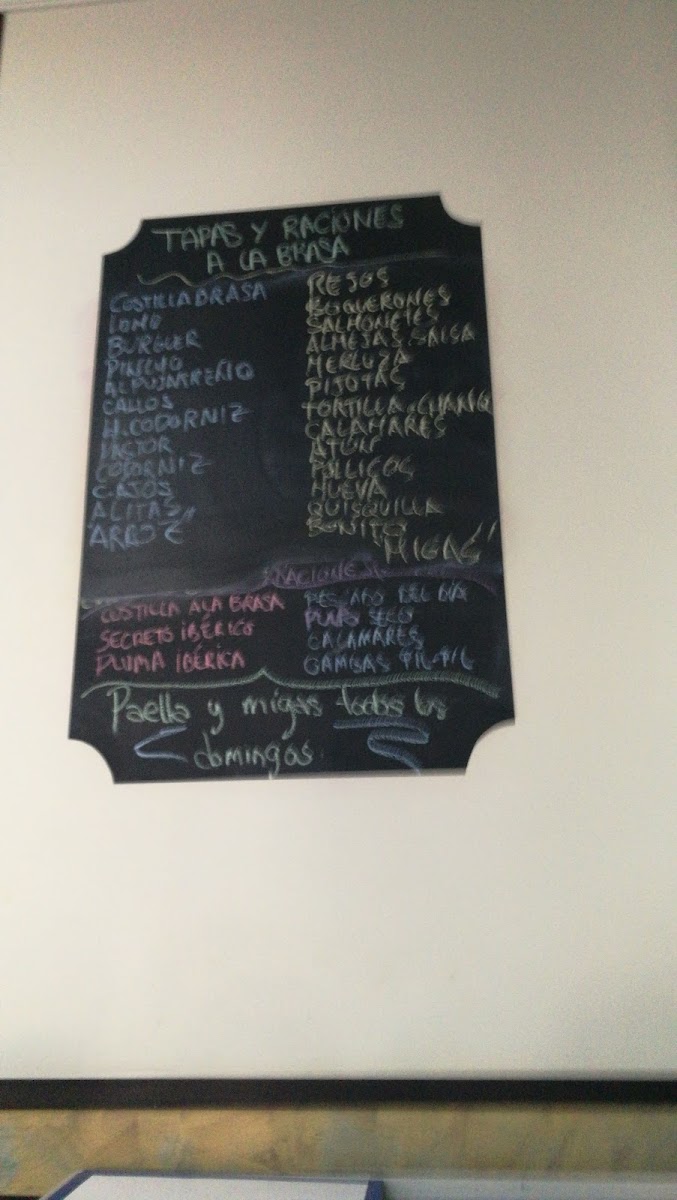 TAPAS Y RACIONES
A LA BRASA
COSTILLA BRASA
LOMO
BURGUER
PINCHO
ALPUJARREÑO
CALLOS
H. CODORNIZ
CODORNIZ
ALITAS
ARROZ
REJOS
BOQUERONES
SALMONETES
ALMEJAS SALSA
MERLUZA
PIJOTAS
TORTILLA CHANQ
CALAMARES
ATUN
HUEVA
QUISQUILLA
BONITO
MIGAS
RACIONES
COSTILLA A LA BRASA
SECRETO IBÉRICO
PLUMA IBÉRICA
PESCADO DEL DÍA
PULPO SECO
CALAMARES
GAMBAS PIL-PIL
Paella y migas todos los
domingos